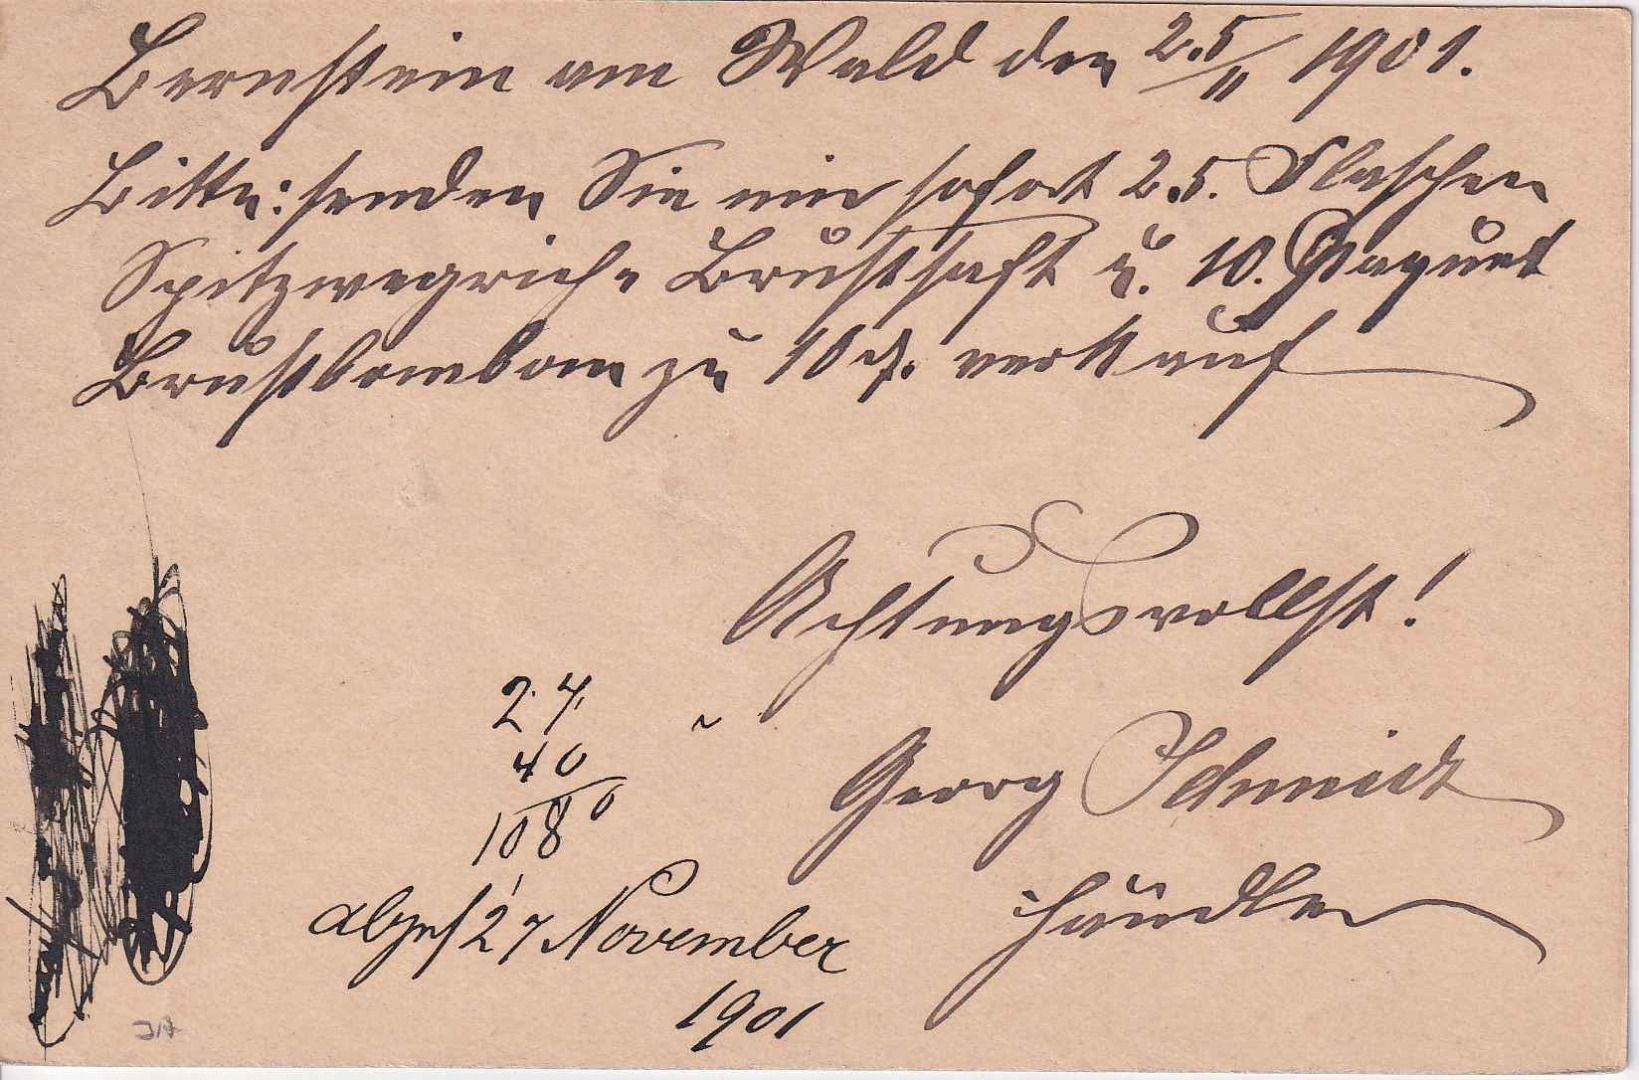 Bernstein am Wald den 25/11 1901.
Bitte: senden Sie mir sofort 25. Flaschen
Spitzwegrich- Brustsaft u. 10. Paquet
Brustbonbon zu 10 ₰. verkauf
Achtungsvollst!
Georg Schmidt
Händler
27.
40
1080
abges/ 27 November
1901